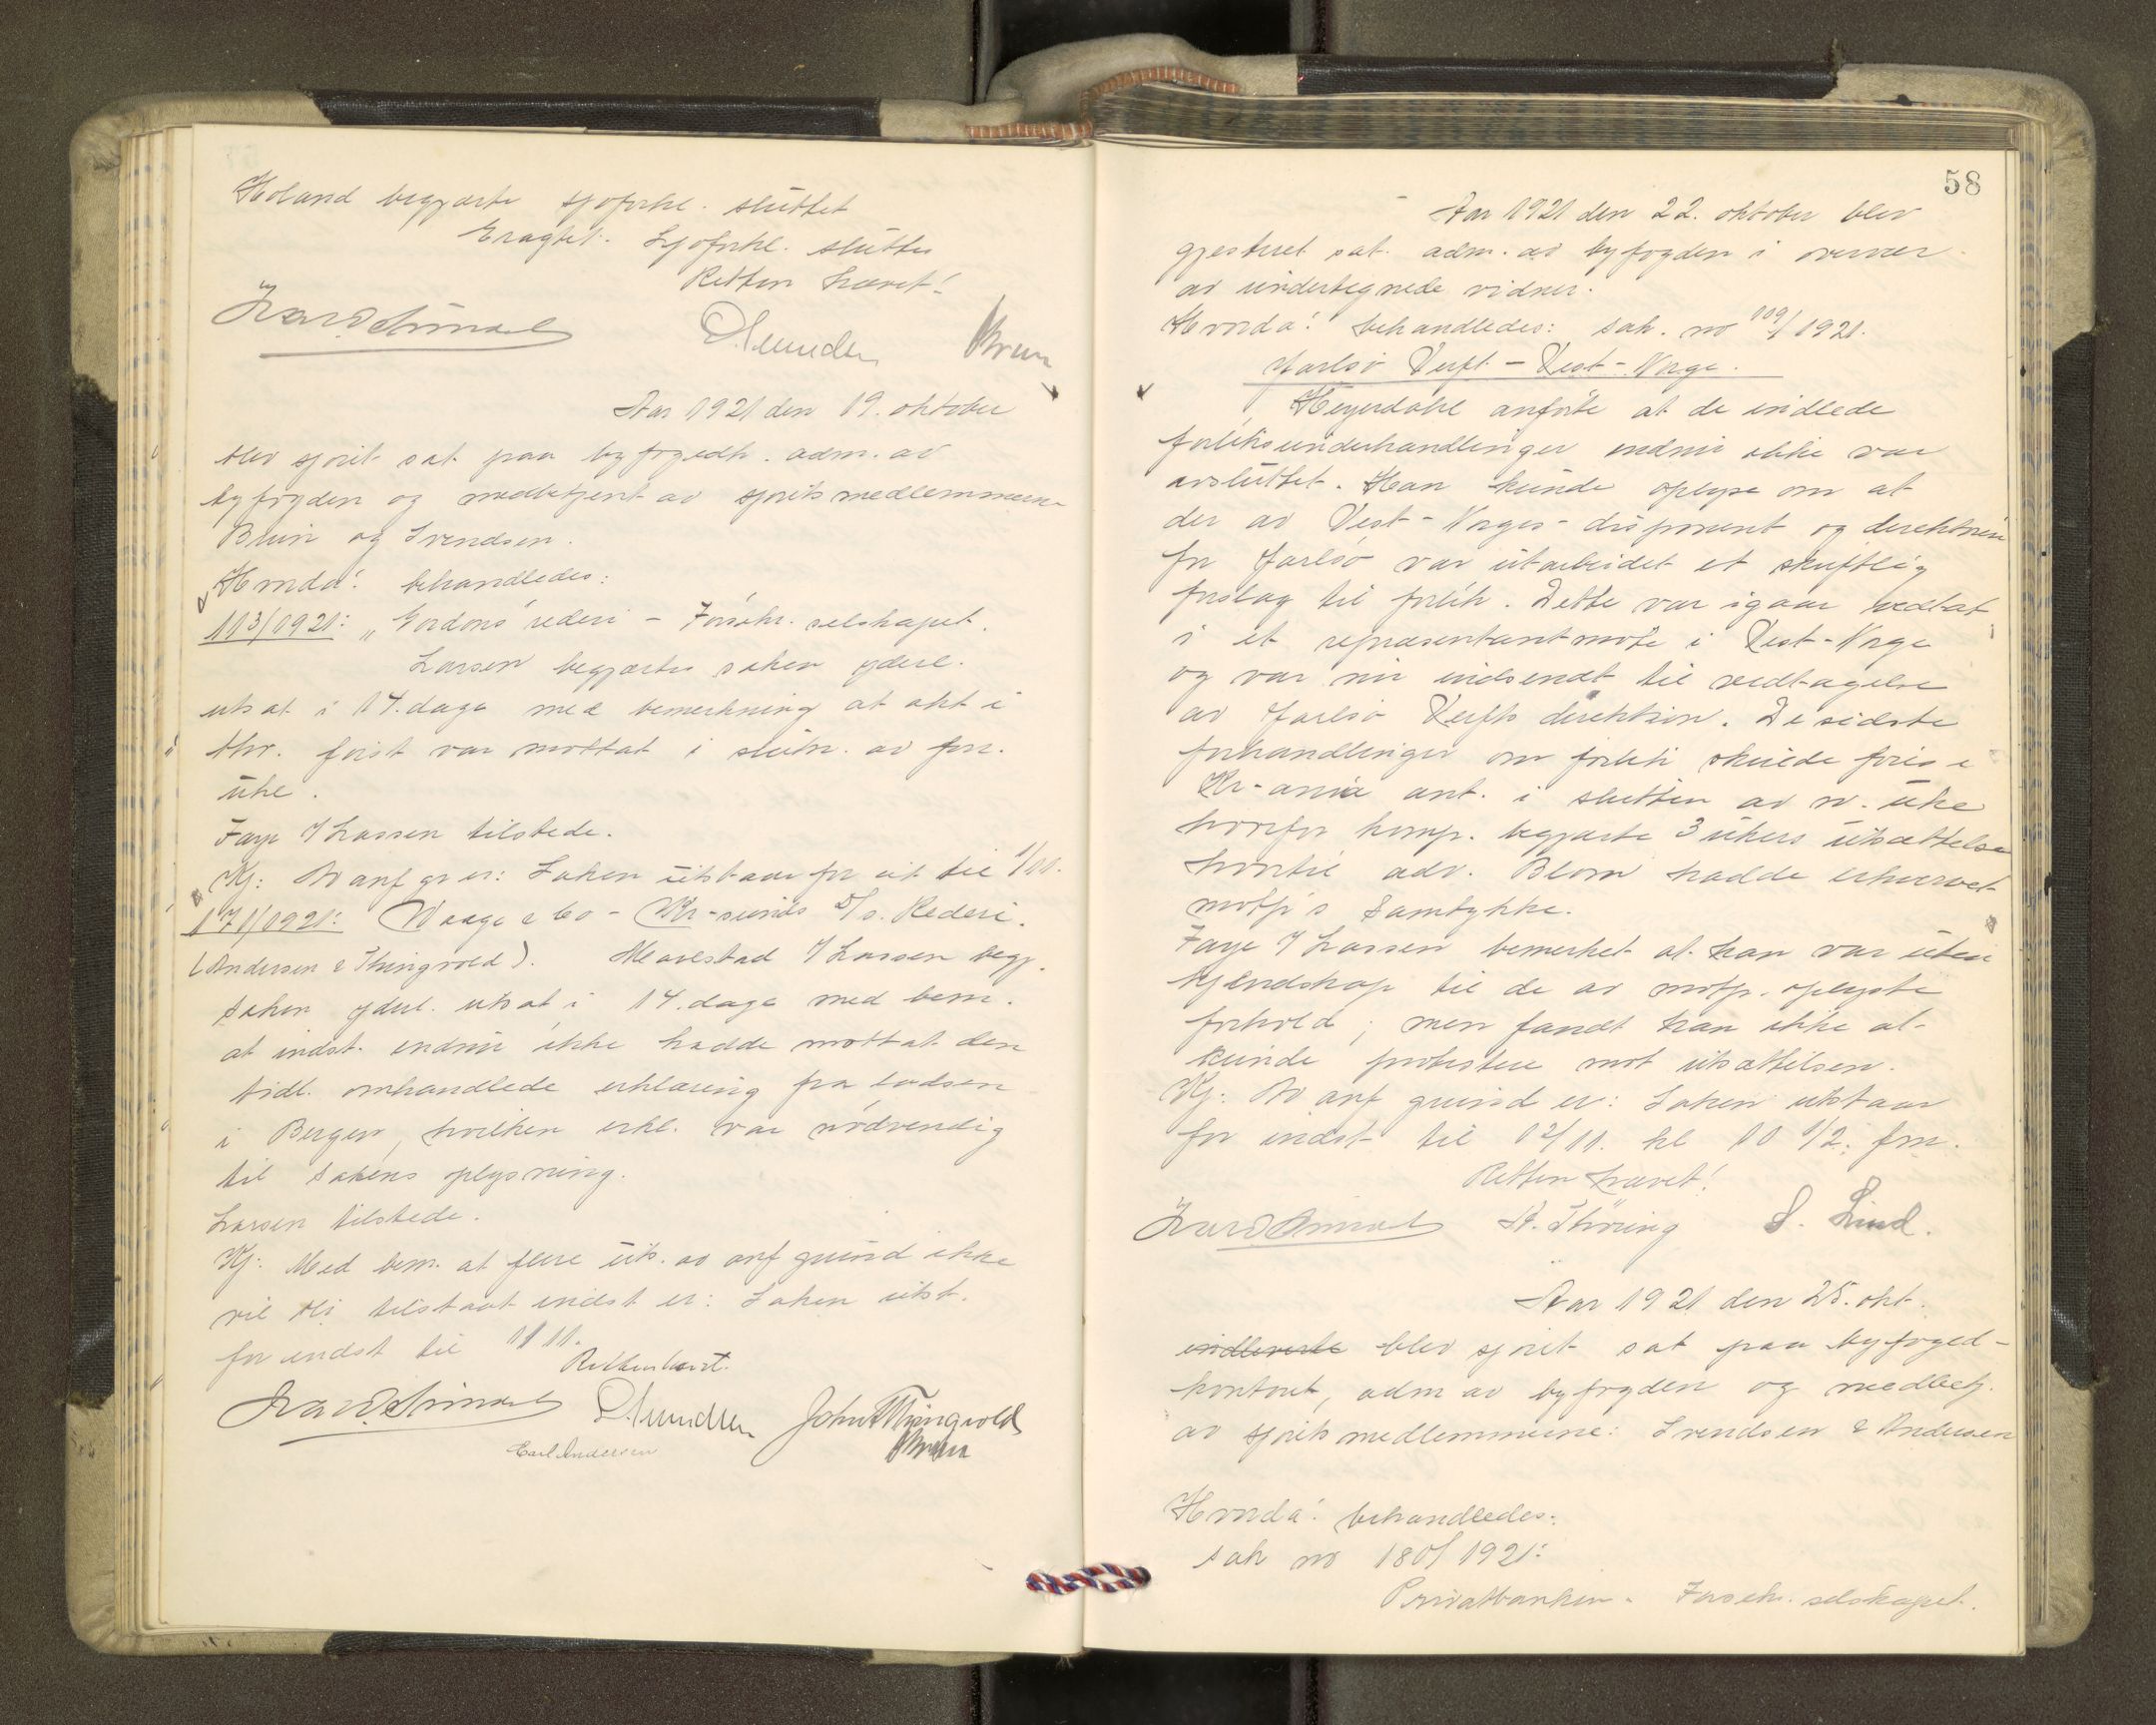 Holand begjærte sjøforkl. sluttet
Eragtet: Sjøforkl. sluttes
Retten hævet!
Aar 1921 den 19. oktober
blev sjøret sat paa byfogedk. adm. av
byfogden og medbetjent av sjøretsmedlemmerne
Bruin og Svendsen.
Hvorda! behandledes:
113/1921: „Gordons" rederi - Forsikr. selskapet.
Larsen begjærte saken yderl.
utsat i 14. dage med bemerkning at akt i
thv. først var mottat i slutn. av forr.
uke.
Faye f Lassen tilstede.
Kj: Av anf gr er: Saken utstaar for sit til 1/11.
171/1921: Waage & Co - Kr-sunds D/s. Rederi.
(Andersen & Thingvold). Havstad f Lassen begj.
saken yderl. utsat i 14. dage med bem.
at indst. endnu ikke hadde mottat den
tidl. omhandlede erklæring fra lodsen
i Bergen, hvilken erkl. var nødvendig
til sakens oplysning.
Larsen tilstede.
Kj: Med bem. at flere uts. av anf grund ikke
vil bli tilstaat indst er: Saken utst.
for indst til 1/11.
Retten hævet.
John Thingvold
Carl Andersen
58
Aar 1921 den 22. oktober blev
gjesteret sat adm. av byfogden i overvær
av undertegnede vidner.
Hvorda! behandledes: sak. no 109/1921.
Jarlsø Verft - Vest-Norge.
Heyerdahl anførte at de indlede
forliksunderhandlinger endnu ikke var
avsluttet. Han kunde oplyse om at
der av Vest-Norges disponent og direktøren
for Jarlsø var utarbeidet et skriftlig
forslag til forlik. Dette var igaar vedtat
i et representantmøte i Vest-Norge
og var nu indsendt til vedtagelse
av Jarlsø Verfts direktion. De sidste
forhandlinger om forlik skulde føres i
Kr-ania ant. i slutten av n. uke
hvorfor komp. begjærte 3 ukers utsættelse
hvortil adv. Blom hadde erhvervet
motp's samtykke.
Faye f Lassen bemerket at han var uten
kjendskap til de av motp. oplyste
forhold; men fandt han ikke at
kunde protestere mot utsættelsen.
Kj: Av anf grund er: Saken utstaar
for indst til 12/11. kl 10 1/2. fm.
Retten hævet!
A. Thoring S. Lind.
Aar 1921 den 25. okt.
indleverte blev sjøret sat paa byfoged-
kontoret, adm av byfogden og medbetj.
av sjøretsmedlemmerne: Svendsen & Andersen
Hvorda! behandledes:
sak no 180/1921:
Privatbanken - Forsik. selskapet.